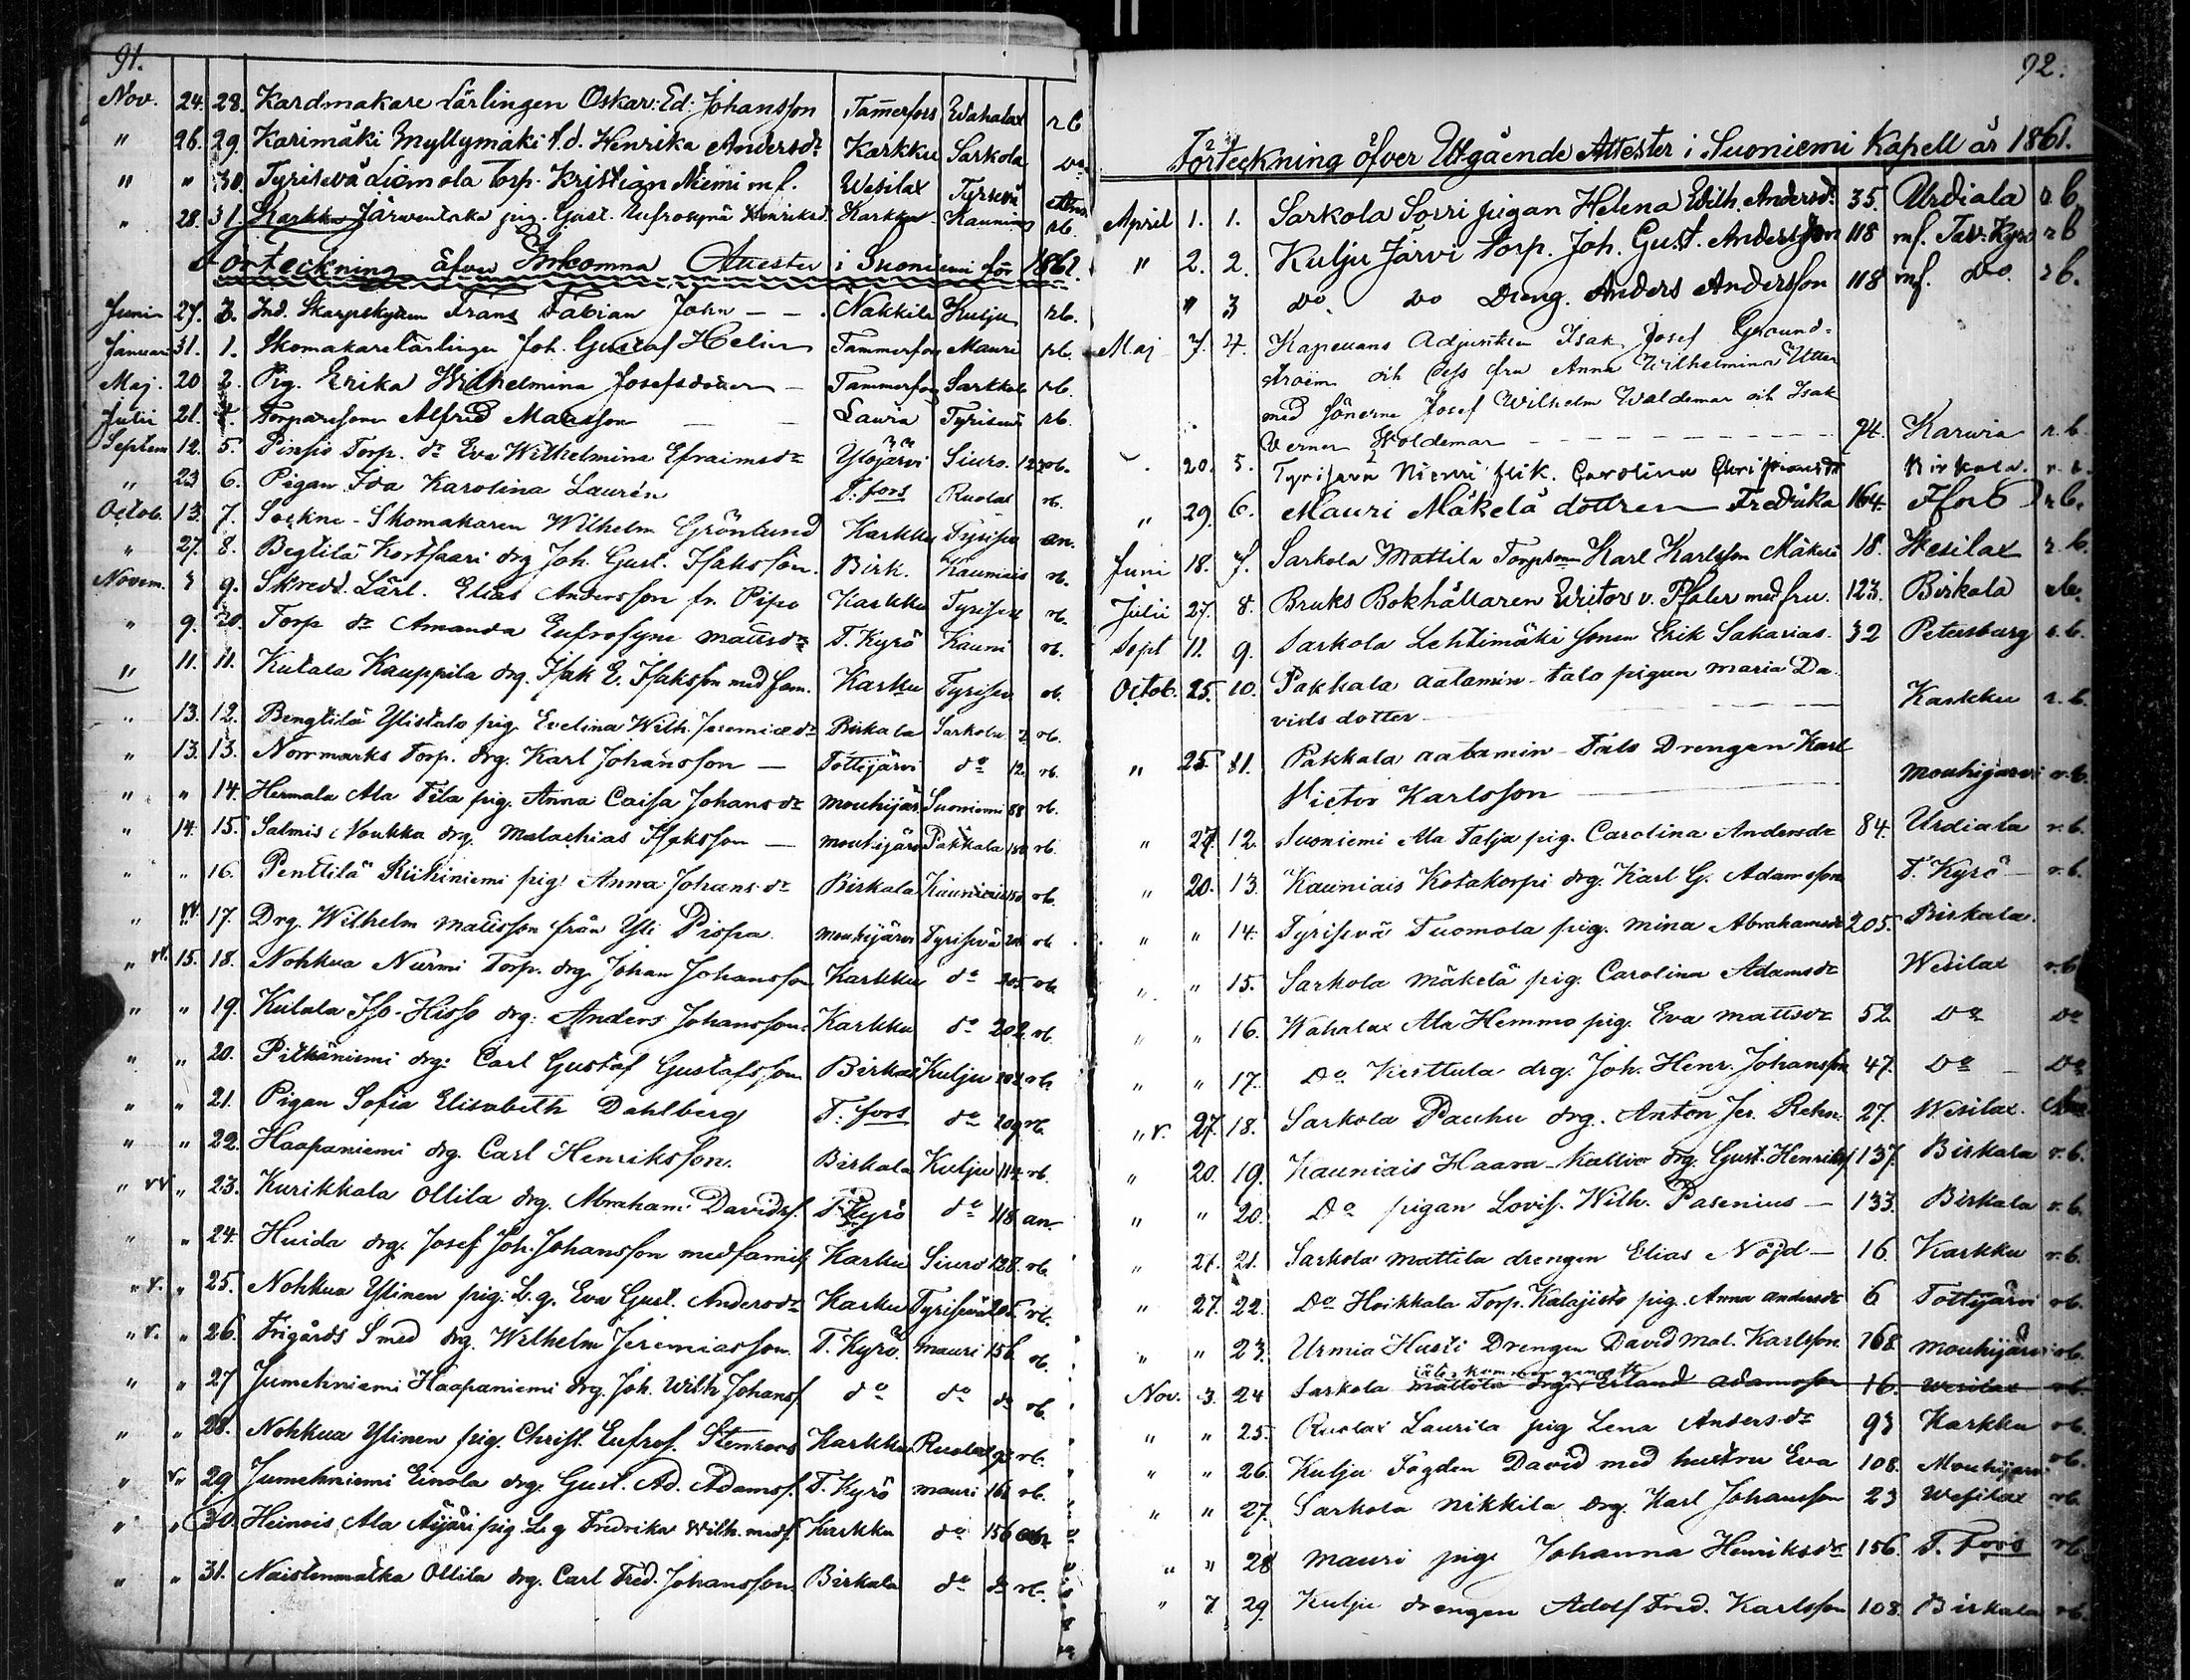 91.
Nov. 24. 28. Kardmakare Lärlingen Oskar: Ed: Johansson Tam̄erfors Wahalax rb
" 26. 29. Karimäki Myllymäki t.d. Henrika Andersdr Karkku Sarkola Do
" " 30. Tyrisevä Liemola Torp. Kristian Niemi m f. Wesilax Tyrisevä
" 28. 31. Karkku Järwentaka pig. Gust. Eufrosynä Henriksd. Karkku Kauniais rb.
Förteckning öfver Inkomna Attester i Suoniemi för 1862.
Juni 27. 3. Ind. Skarpskytten Frans Fabian John - - Nakkila Kulju rb.
Januari 31. 1. Skomakare Lärlingen Joh. Gustaf Helin Tammerfors Mauri rb.
Maj. 20 2. Pig. Erika Wilhelmina Josefsdotter - Tammerfors Sarkola rb.
Julii 21. 4. Torparesson Alfred Matsson - - Lavia Tyrisevä rb.
Septem 12. 5. Pinsiö Torp. dr Eva Wilhelmina Efraimsdr Ylöjärvi Siuro. 123 rb.
" 23 6. Pigan Ida Karolina Laurén T.fors Ruolax rb.
Octob. 13. 7. Sockne-Skomakaren Wilhelm Grönlund Karkku Tyrisev an.
" 27. 8. Begtilä Kortsaari drg Joh. Gust. Isaksson. Birk. Kauniais rb.
Novem. 3 9. Skredd. Lärl. Elias Andersson fr. Pispa Karkku Tyrisev rb.
" 9. 10. Torp dr Amanda Eufrosyne Mattsdr T. Kyrö Kauni rb.
" 11. 11. Kutala Kauppila drg. Isak E. Isaksson med fam. Karkku Tyrisev rb.
" 13. 12. Bengtilä Ylistalo pig. Evelina Wilh. Jeremiædr Birkala Sarkola rb.
" 13. 13. Norrmarks Torp. drg. Karl Johansson — Tottijärvi do 12. rb.
" " 14. Hermala Ala Tila pig. Anna Caisa Johansdr Mouhijär Suoniemi 88 rb.
" 14. 15. Salmis Noukka drg. Malachias Isaksson — Mouhijärv Pakkala rb.
" " 16. Penttilä Riihiniemi pig. Anna Johansdr Birkala Kauniais rb.
" 17. Drg. Wilhelm Matsson från Yli Pispa Mouhijärvi Tyrisevä rb
" 15. 18. Nohkua Nurmi Torp. drg. Johan Johansson Karkku do 205 rb.
" " 19. Kutala Iso-Hiisso drg. Anders Johansson. Karkku do 202. rb.
" " 20. Pitkäniemi drg. Carl Gustaf Gustafsson Birkal Kulju rb.
" " 21. Pigan Sofia Elisabeth Dahlberg T. fors do 109 rb.
" " 22. Haapaniemi drg. Carl Henriksson. Birkala Kulju 114 rb.
" vv " 23. Kurikkala Ollila drg. Abraham Davidss. T. Kyrö do 118 an.
" " 24. Huida drg. Josef Joh. Johansson med familj Karkku Siuro 128. rb.
" v. " 25. Nohkua Ylinen pig. L.g. Eva Gust. Andersdr Karkku Tyrisevä 205. rb.
" v. " 26. Frigårds Smed drg. Wilhelm Jeremiasson. T. Kyrö. Mauri 156. rb.
" " 27 Jumehniemi Haapaniemi drg. Joh. Wilh Johanss. do do do rb.
" " 28. Nohkua Ylinen pig. Christ. Eufros. Stenroos Karkku Ruolax 93 rb.
" v " 29. Jumehniemi Einola drg. Gust. Ad. Adamss. T. Kyrö Mauri 161 rb.
" " 30. Heinois Ala Äijäri pig. L.g Fredrika Wilh. medf. Karkku do 156
" " 31. Naistenmatka Ollila drg. Carl Fred. Johansson. Birkala do do rb.
92.
Förteckning öfver Utgående Attester i Suoniemi Kapell år 1861.
April 1. 1. Sarkola Sorri pigan Helena Wilh. Andersd. 35. Urdiala rb.
" 2. 2. Kulju Järvi Torp. Joh. Gust. Andersson 118 mf. Tav: Kyrö rb
" 3 do. do Dreng. Anders Andersson 118 mf. do. rb.
Maj 7. 4. Kapellans Adjunkten Isak Josef Ground-
ström och dess fru Anna Wilhelmina Utter
med sönerne Josef Wilhelm Waldemar och Isak
Verner Woldemar - - - - - 74. Karvia r.b.
" 20. 5. Tyrisevä Niemi flik. Carolina Christiansdr Birkala. r.b.
" 29. 6. Mauri Mäkelä dottren Fredrika 164. Tfors rb.
Juni 18. 7. Sarkola Mattila Torpson Karl Karlsson Mäkelä 18. Wesilax r.b.
Julii 27. 8. Bruks Bokhållaren Victor v. Pfaler med fru. 123. Birkala
Sept 11. 9. Sarkola Lehtimäki sonen Erik Sakarias. 32 Petersburg r.b.
Octob. 25. 10. Pakkala Aatamin-talo pigan Maria Da-
vids dotter Karkku r.b.
" 25. 11. Pakkala Aatamin-Talo Drengen Karl
Victor Karlsson Mouhijärvi r.b.
" 27. 12. Suoniemi Ala Talja pig. Carolina Andersdr 84. Urdiala r.b.
" 20. 13. Kauniais Kotakorpi drg. Karl G. Adamsson T. Kyrö r.b.
" " 14. Tyrisevä Tuomola pig. Mina Abrahamsdr 205. Birkala.
" " 15. Sarkola Mäkelä pig. Carolina Adamsdr Wesilax r.b.
" " 16. Wahalax Ala Hemmo pig. Eva Mattsdr 52 do do
" " 17. Do Kerttula drg. Joh. Henr. Johansson 47. do do
" v. 27. 18. Sarkola Pauhu drg. Anton Jer. Rehn. 27. Wesilax.
" 20. 19. Kauniais Haara-Kallio drg. Gust. Henriks 137. Birkala r.b.
" " 20. Do pigan Lovis. Wilh. Pasenius — 133. Birkala r.b.
" 21. 21. Sarkola Mattila drengen Elias Nöjd — 16. Karkku r.b.
" 27. 22. Do Hoikkala Torp. Kalajisto pig. Anna Andersdr 6 Tottijärvi rb.
" " 23. Urmia Husti Drengen David Mat. Karlsson 168. Mouhijärvi rb.
Nov. 3. 24 Sarkola Mattila drgn Erland Adamsson 16. Wesilax rb.
" " 25. Ruolax Laurila pig Lena Andersdr 93 Karkku rb.
" " 26. Kulju Sågden David med hustru Eva 108. Mouhijärvi rb.
" " 27. Sarkola Nikkilä drg. Karl Johansson 23 Wesilax rb.
" " 28 Mauri pig. Johanna Henriksdr 156. T. Fors rb.
" 7. 29. Kulju drengen Adolf Fred. Karlsson 108. Birkala rb.